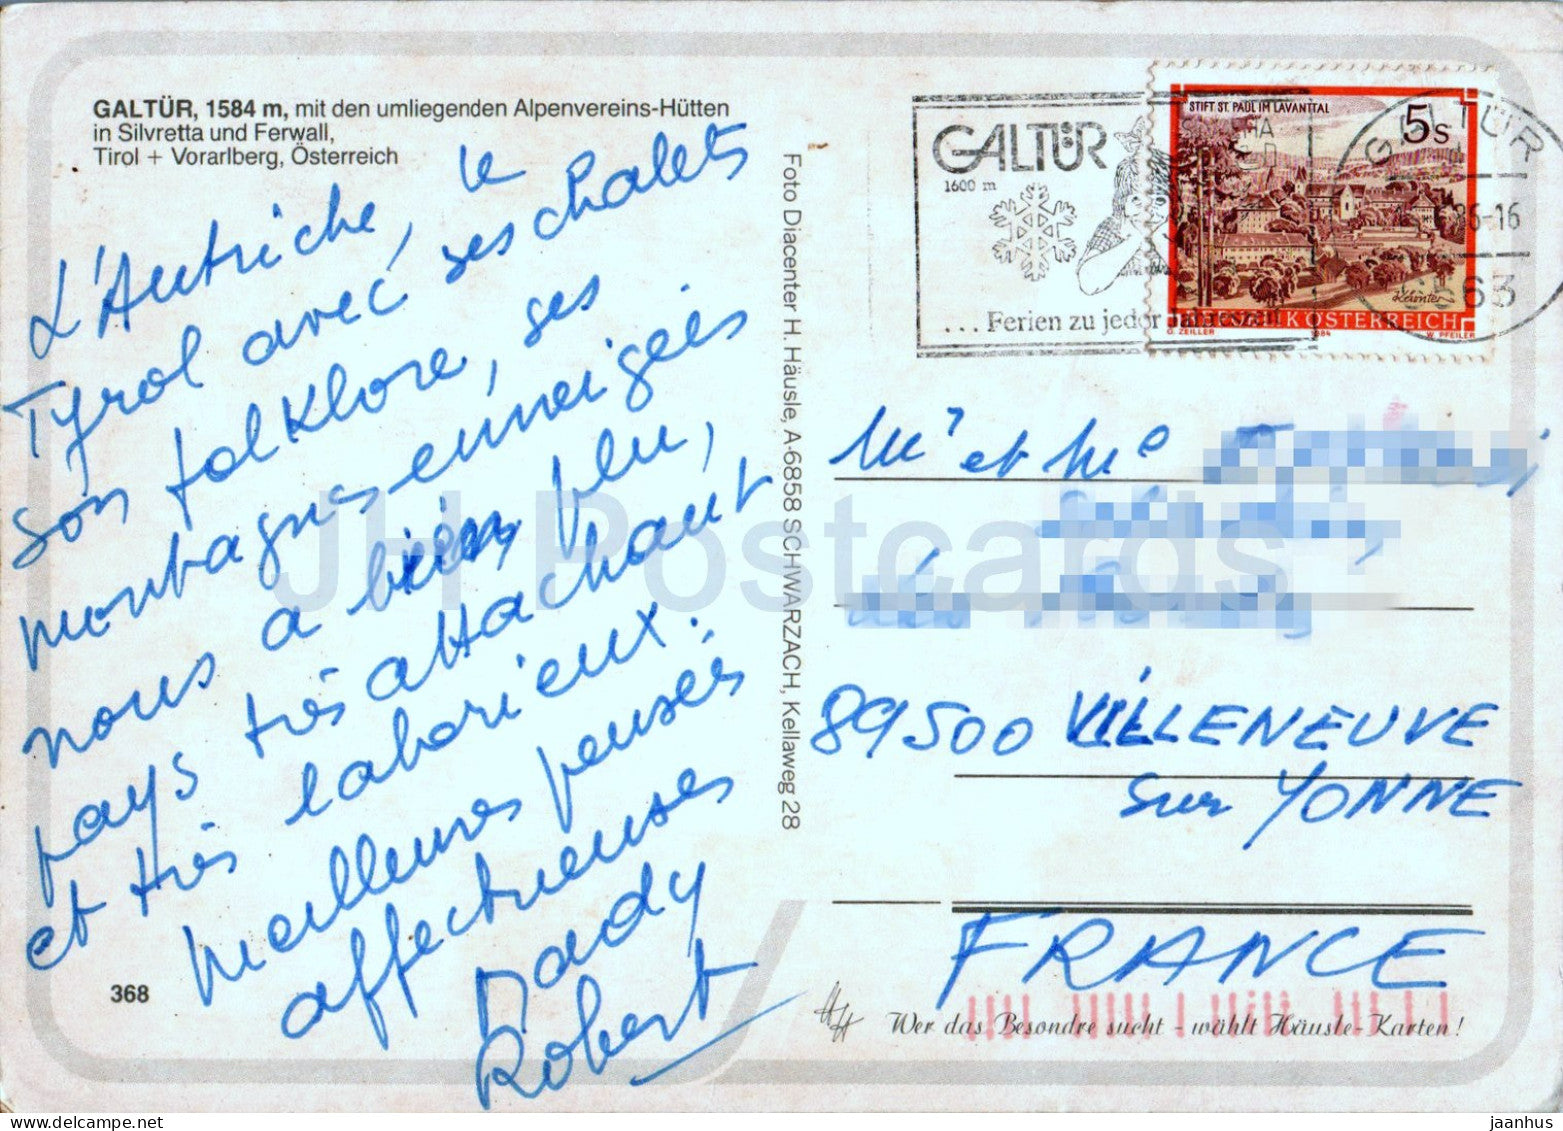 GALTÜR, 1584 m, mit den umliegenden Alpenvereins-Hütten
in Silvretta und Ferwall,
Tirol + Vorarlberg, Österreich
L'Autriche, le
Tyrol avec ses chalets
son folklore, ses
montagnes enneigées
nous a bien plu,
pays très attachant
et très laborieux.
Meilleures pensées
affectueuses
Dady
Robert
368
Foto Diacenter H. Häusle, A-6858 SCHWARZACH, Kellaweg 28
GALTÜR
1600 m
... Ferien zu jeder Jahreszeit
STIFT ST. PAUL IM LAVANTTAL
5 S
Kärnten
REPUBLIK ÖSTERREICH
G. ZEILLER 1984 W. PFEILER
GALTÜR
86-16
6563
Mr et Me
89500 VILLENEUVE
sur YONNE
FRANCE
HH Wer das Besondre sucht - wählt Häusle-Karten!
JH Postcards
http://www.delcampe.net
jaanhus